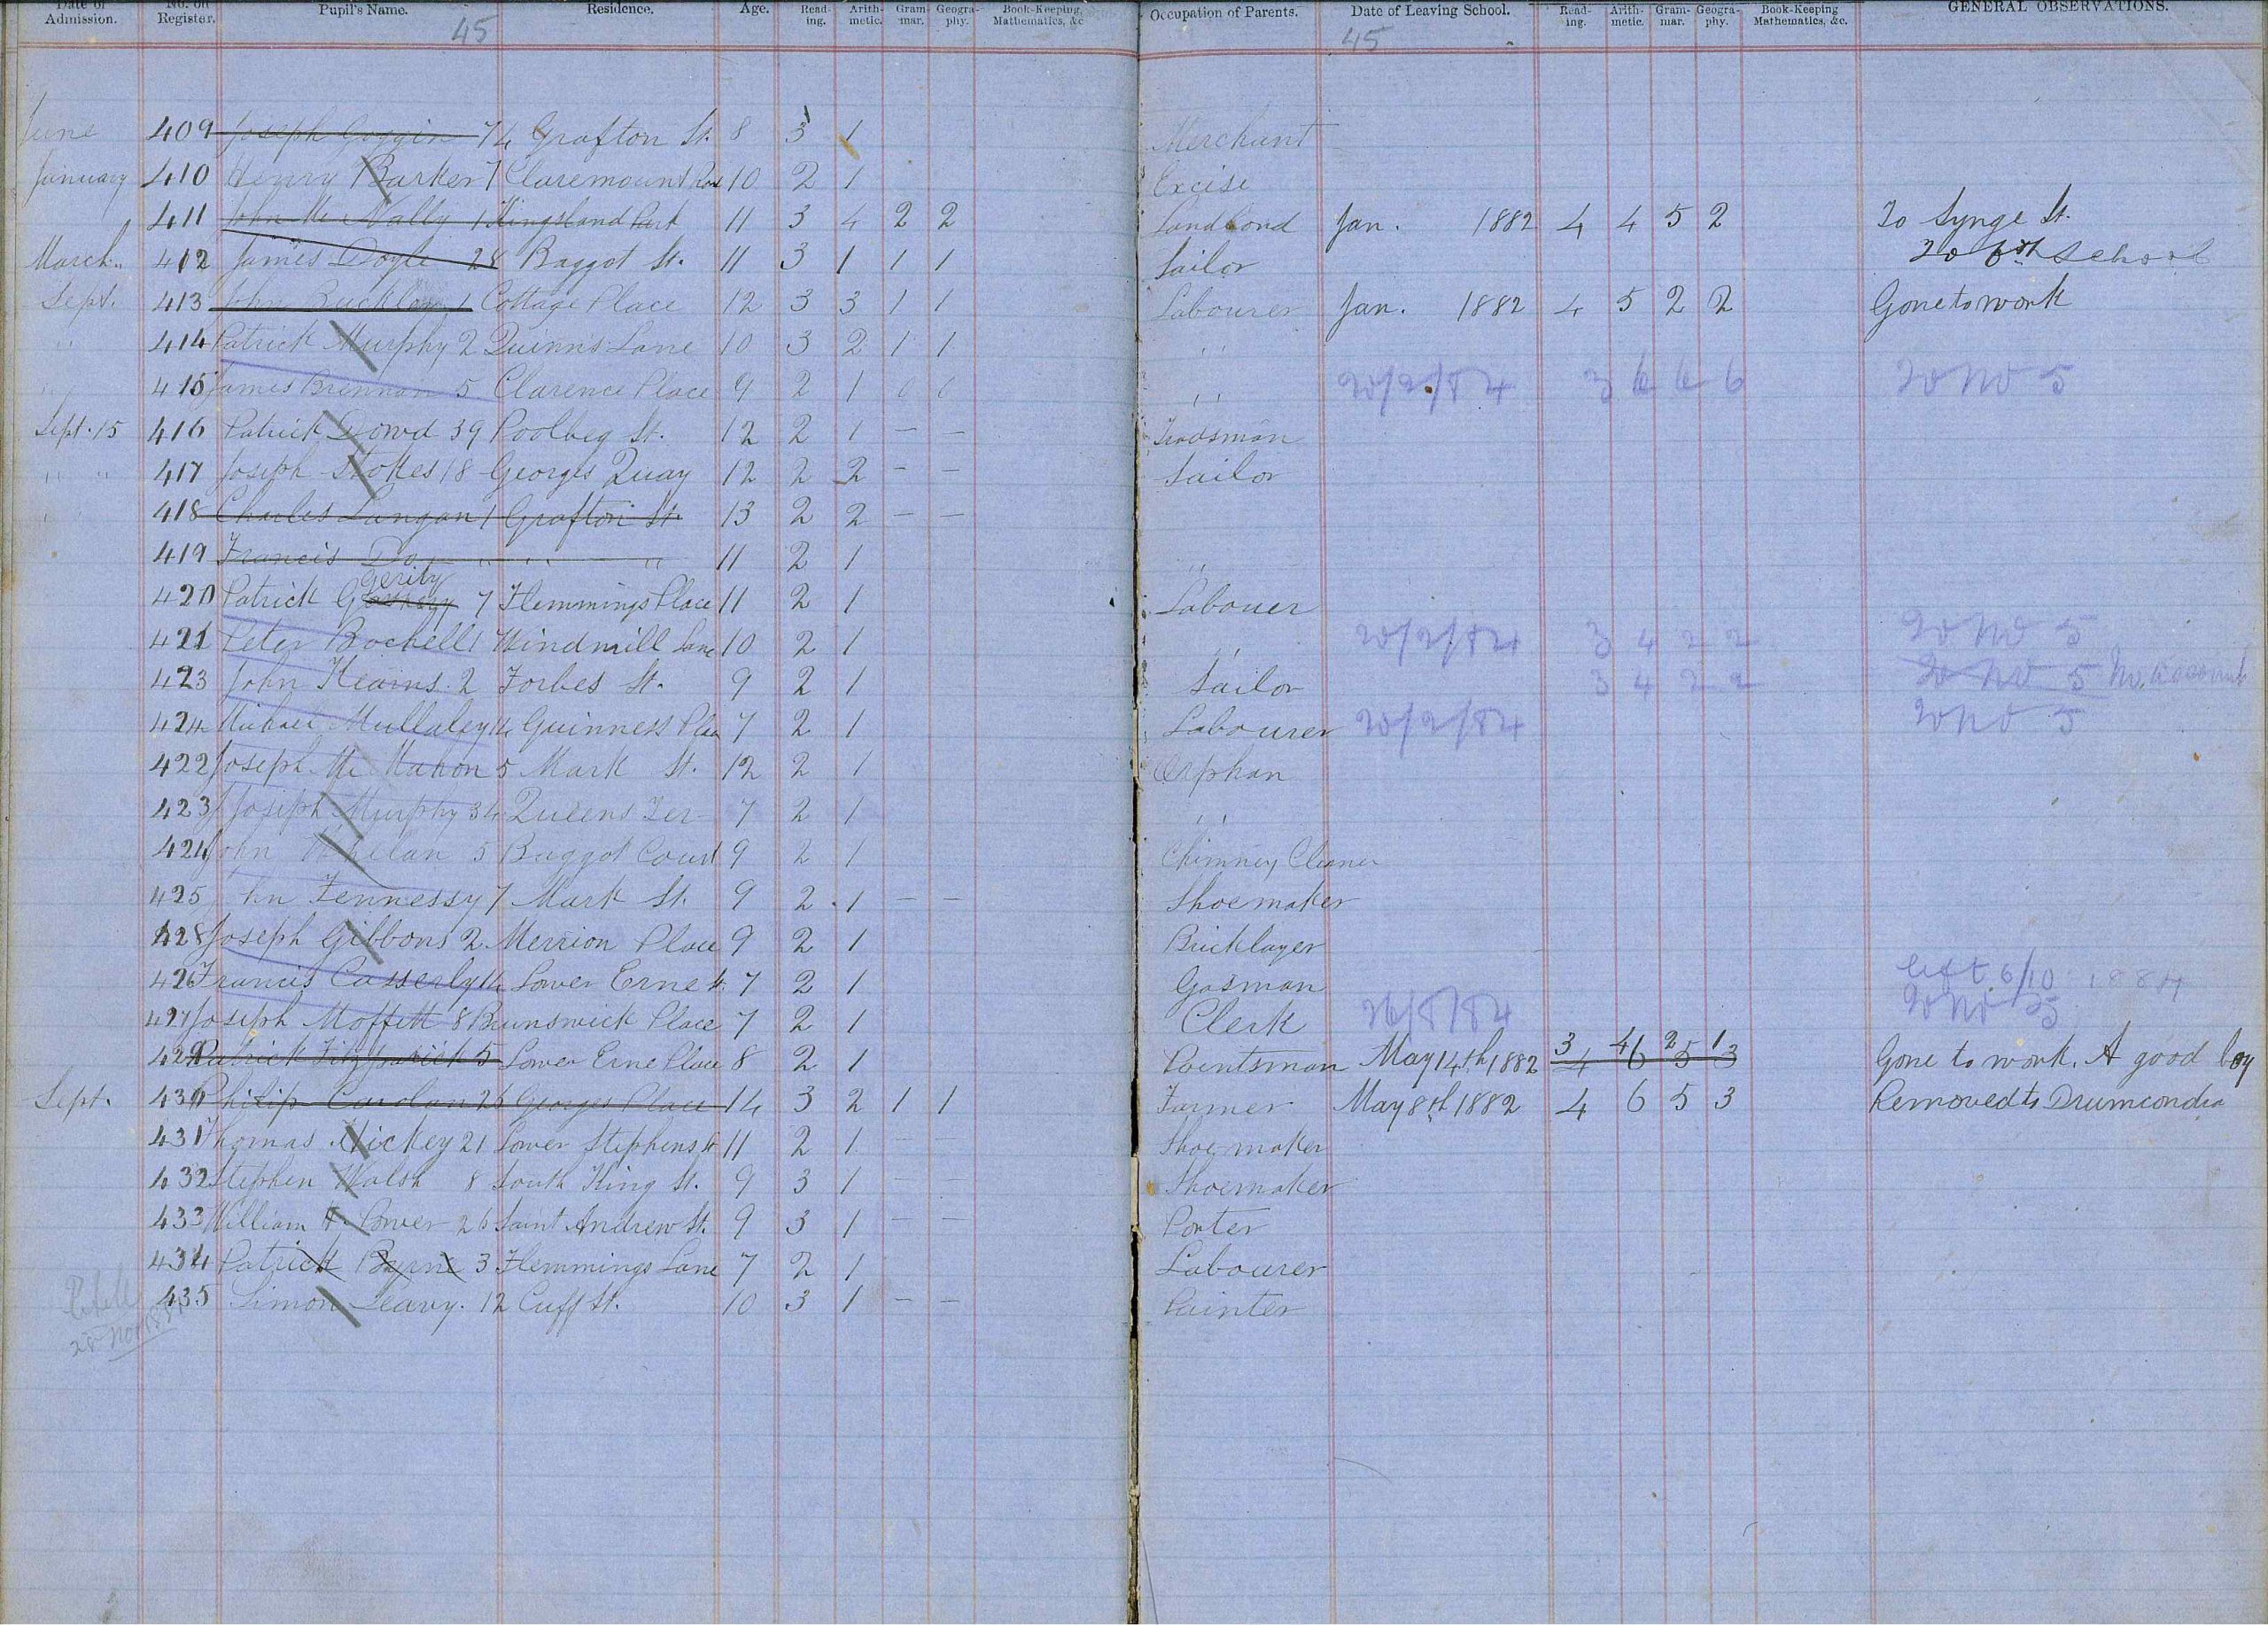 Date of Admission. No. on Register. Pupil's Name. Residence. Age. Read-ing. Arith-metic. Gram-mar. Geogra-phy. Book-Keeping, Mathematics, &c Occupation of Parents. Date of Leaving School. Read-ing. Arith-metic. Gram-mar. Geogra-phy. Book-Keeping Mathematics, &c. GENERAL OBSERVATIONS.
45 45
June 409 Joseph Goggin 74 Grafton St. 8 3 1 Merchant
January 410 Henry Barker 7 Claremount Road 10 2 1 Excise
411 John Mc Nally 1 Kingsland Park 11 3 4 2 2 Land Lond Jan. 1882 4 4 5 2 To Synge St.
March " 412 James Doyle 28 Baggot St. 11 3 1 1 1 Sailor To 6th School
Sept. 413 John Buckley 1 Cottage Place 12 3 3 1 1 Labourer Jan. 1882 4 5 2 2 Gone to work
" 414 Patrick Murphy 2 Quinn's Lane 10 3 2 1 1 "
415 James Brennan 5 Clarence Place 9 2 1 " 20/2/84 3 6 6 6 To No 5
Sept. 15 416 Patrick Dowd 39 Poolbeg St. 12 2 1 – – Tradsman
" " 417 Joseph Stokes 18 Georges Quay 12 2 2 – – Sailor
418 Charles Langan 1 Grafton St. 13 2 2 – –
419 Francis Do " " " 11 2 1 "
Gerity
420 Patrick 7 Flemmings Place 11 2 1 Labouer
421 Peter Bochell 1 Windmill Lane 10 2 1 " 20/2/84 3 4 2 2 To No 5
423 John Kearns 2 Forbes St. 9 2 1 Sailor 3 4 2 2 To No 5 No account
424 Michael Mullaley 14 Guinness Place 7 2 1 Labourer 20/2/84 To No 5
422 Joseph Mc Mahon 5 Mark St. 12 2 1 Orphan
423 Joseph Murphy 34 Queens Ter 7 2 1 "
424 John Whelan 5 Baggot Court 9 2 1 Chimney Cleaner
425 hn Fennessy 7 Mark St. 9 2 1 – – Shoemaker
428 Joseph Gibbons 2 Merrion Place 9 2 1 Bricklayer
426 Francis Casserly 14 Lower Erne St. 7 2 1 Gasman left 6/10 1884
427 Joseph Moffett 8 Brunswick Place 7 2 1 Clerk 26/8/84 To No 5
429 Patrick Fitzpatrick 5 Lower Erne Place 8 2 1 Pointsman May 14th 1882 3 4 2 1 4 6 5 3 Gone to work. A good boy
Sept. 430 Philip Carolan 26 Georges Place 14 3 2 1 1 Farmer May 8th 1882 4 6 5 3 Removed to Drumcondra
431 Thomas Hickey 21 Lower Stephens St 11 2 1 – – Shoe maker
432 Stephen Walsh 8 South King St. 9 3 1 – – Shoemaker
433 William H. Power 26 Saint Andrew St. 9 3 1 – – Porter
434 Patrick Byrne 3 Flemmings Lane 7 2 1 Labourer
435 Simon Leavy. 12 Cuff St. 10 3 1 – – Painter